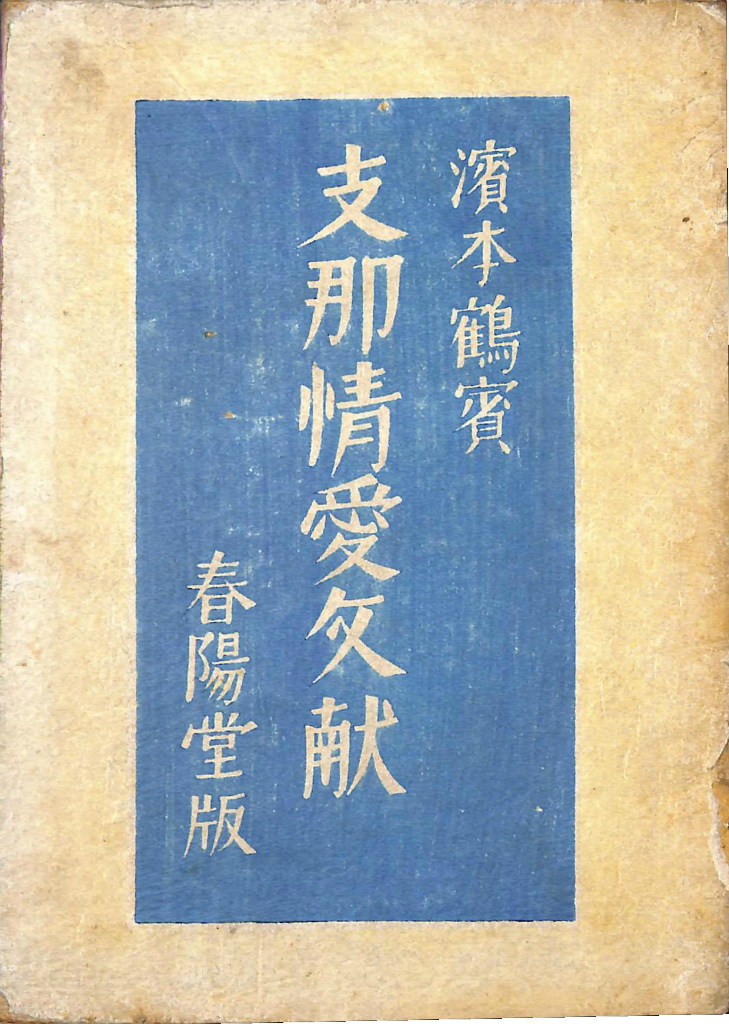 濱本鶴賓
支那情愛文献
春陽堂版